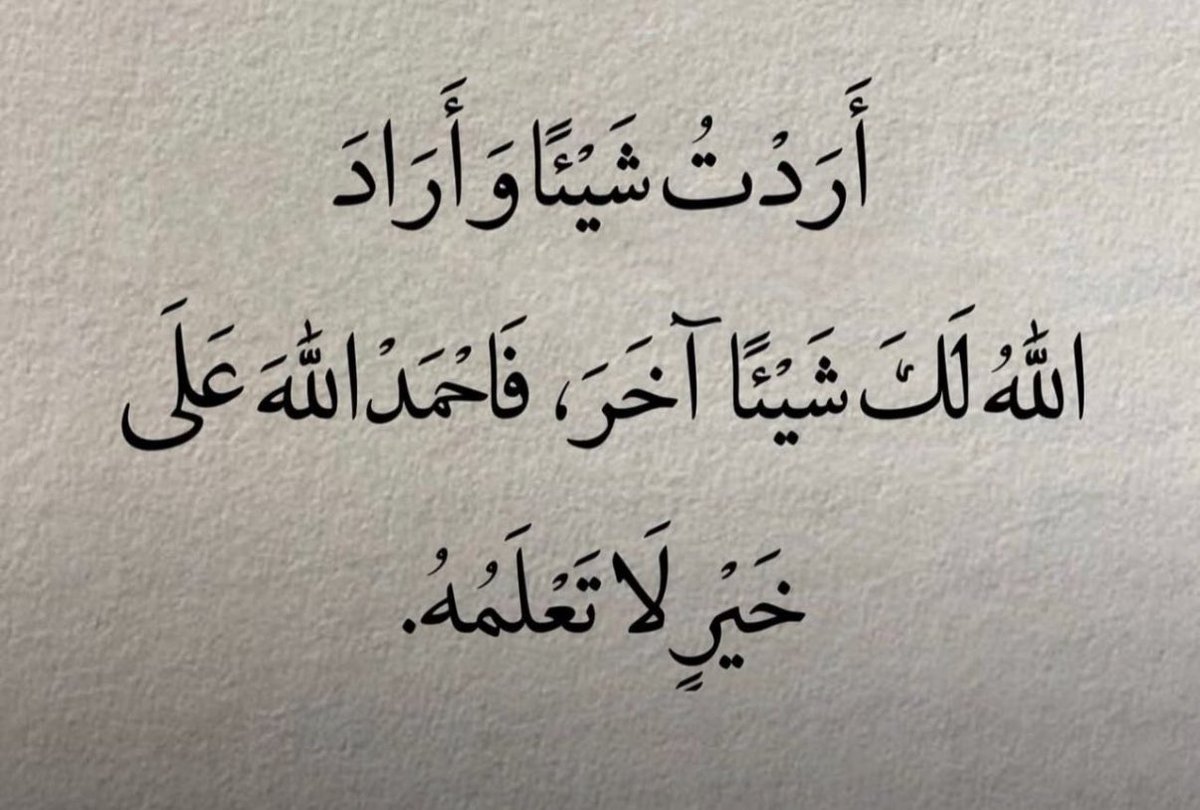 أَرَدْتُ شَيْئًا وَأَرَادَ
اللّٰهُ لَكَ شَيْئًا آخَرَ، فَاحْمَدْ اللّٰهَ عَلَى
خَيْرٍ لَا تَعْلَمُهُ.